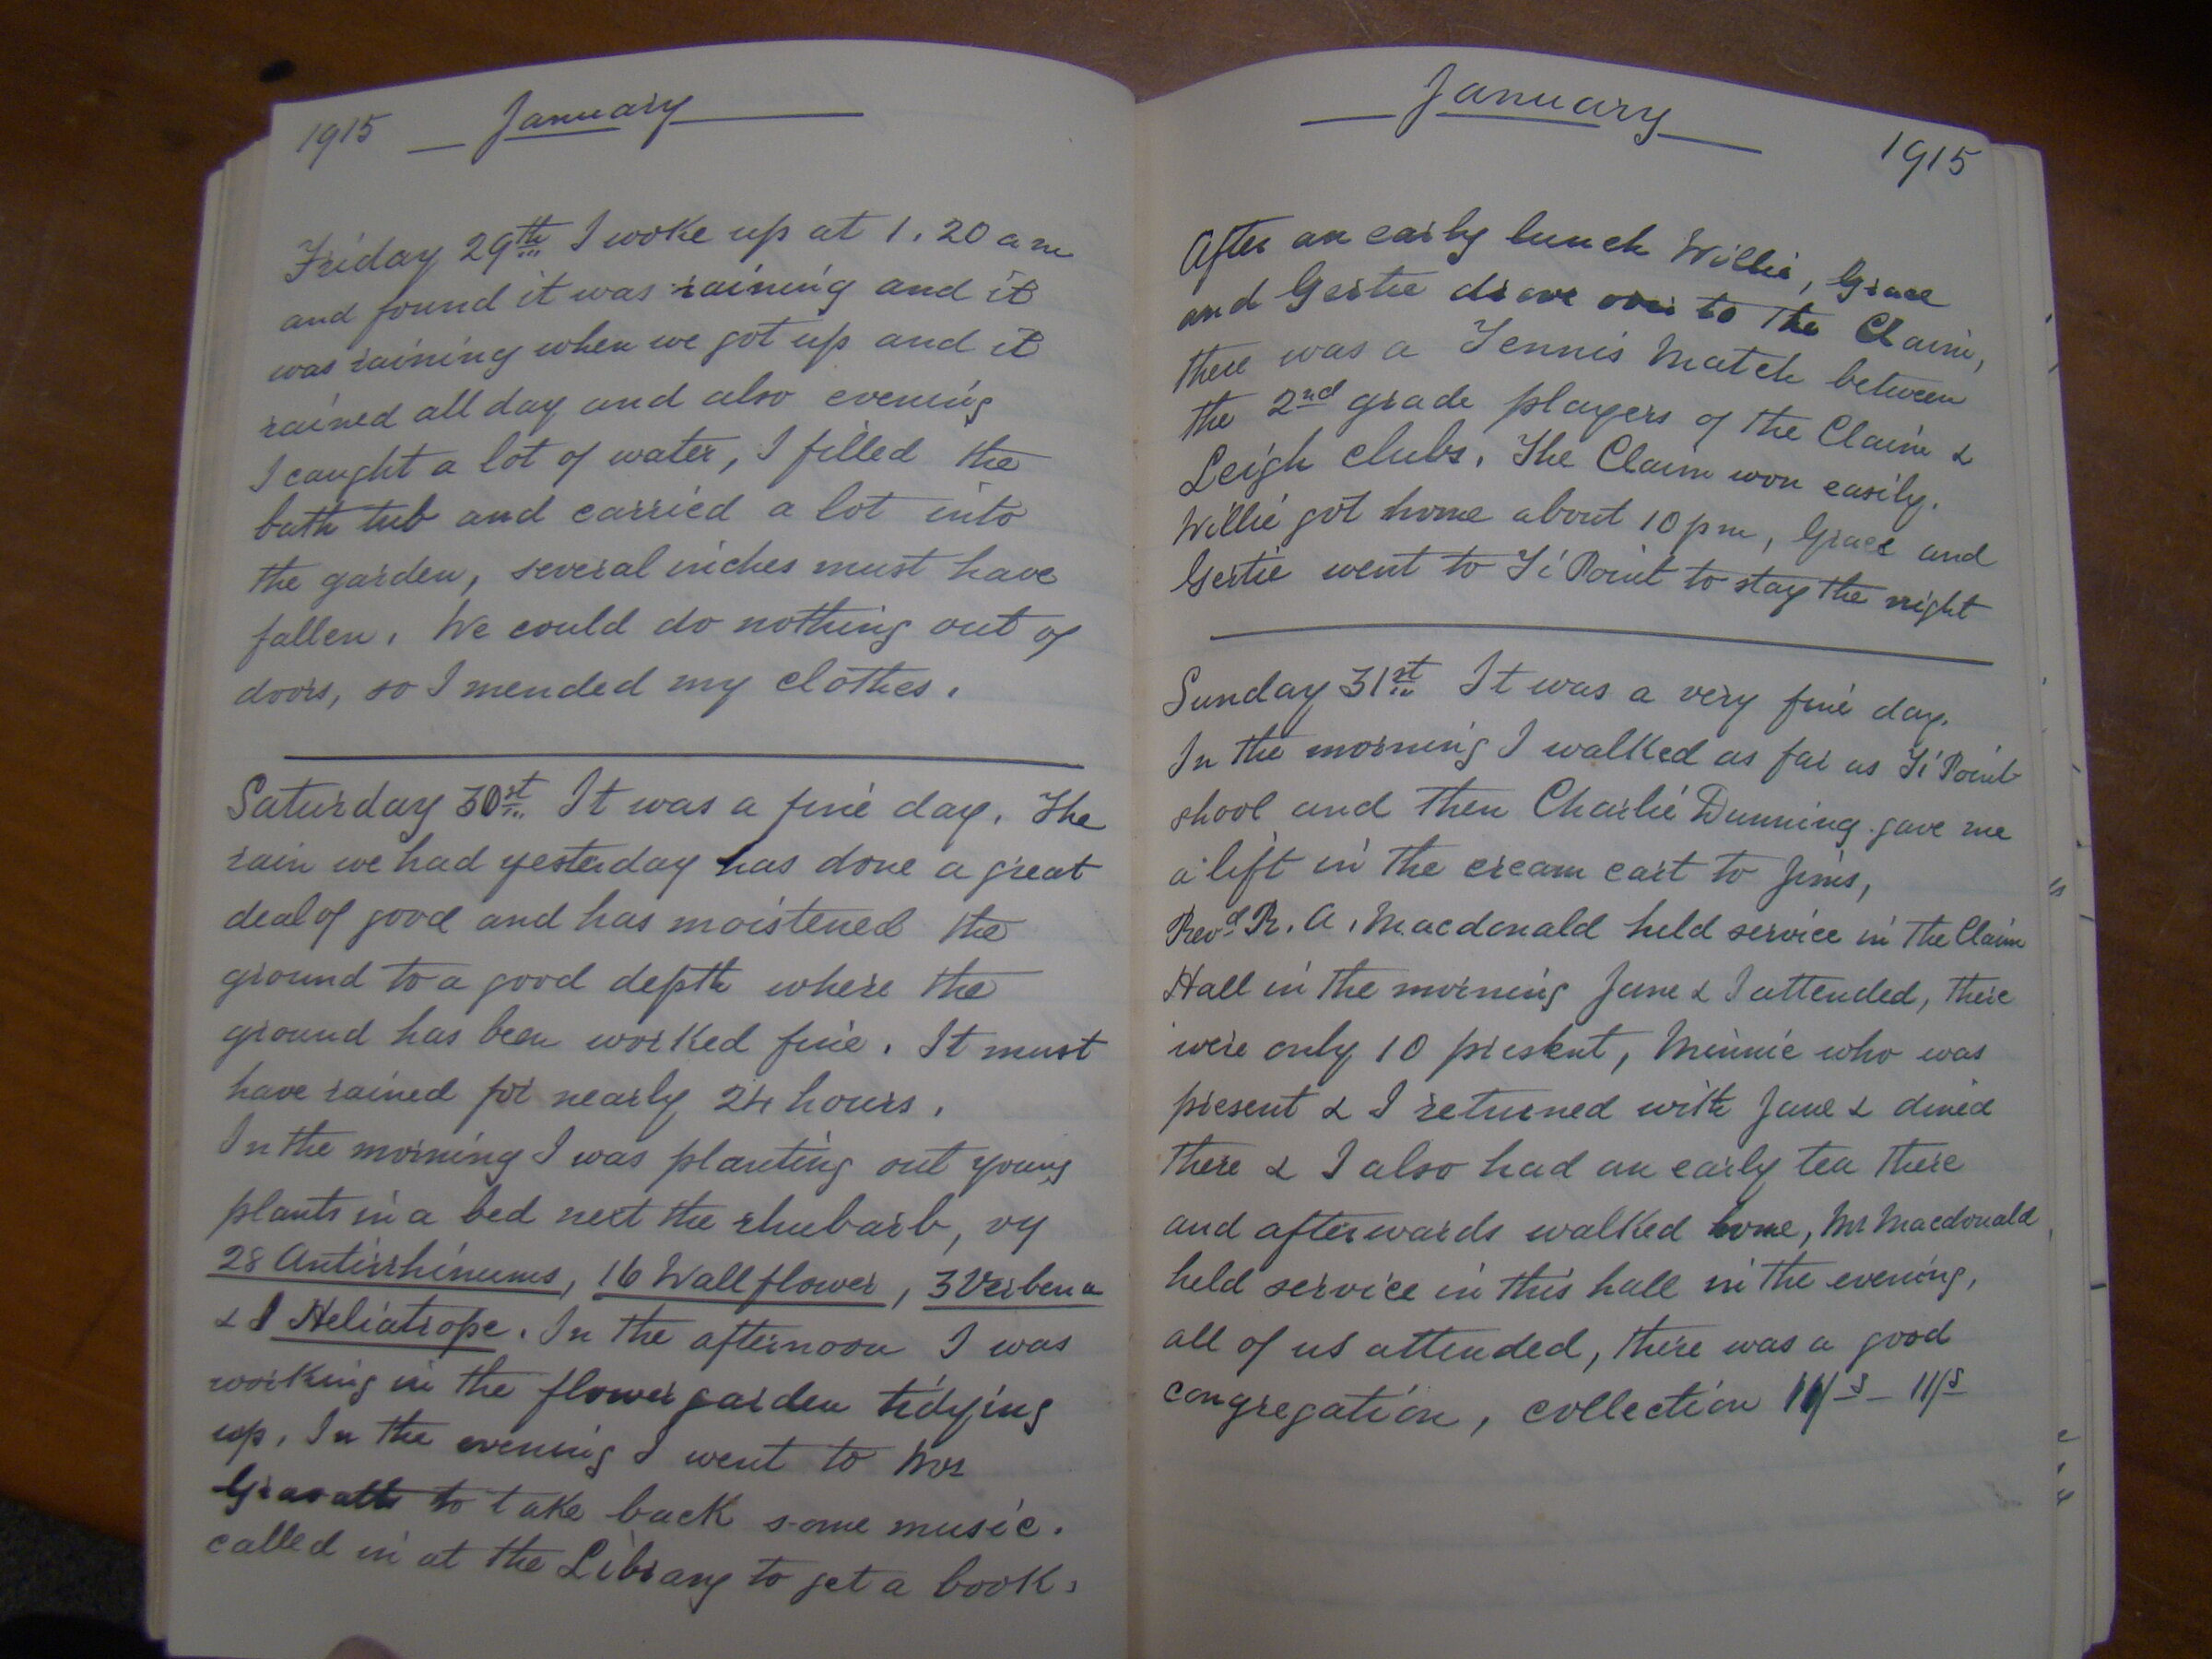 1915 January
Friday 29th I woke up at 1.20 am
and found it was raining and it
was raining when we got up and it
rained all day and also evening
I caught a lot of water, I filled the
bath tub and carried a lot into
the garden, several inches must have
fallen. We could do nothing out of
doors, so I mended my clothes.
Saturday 30st It was a fine day. The
rain we had yesterday has done a great
deal of good and has moistened the
ground to a good depth where the
ground has been worked fine. It must
have rained for nearly 24 hours.
In the morning I was planting out young
plants in a bed next the rhubarb, vy
28 Antirrhinums, 16 Wallflower, 3 Verbena
& 1 Heliatrope. In the afternoon I was
working in the flower garden tidying
up. In the evening I went to Mrs
to take back some music.
called in at the Library to get a book.
January 1915
After an early lunch Willie, Grace
and Gertie drove over to the Claim,
there was a Tennis Match between
the 2nd grade players of the Claim &
Leigh clubs. The Claim won easily.
Willie got home about 10 pm, Grace and
Gertie went to Ti Point to stay the night
Sunday 31st It was a very fine day.
In the morning I walked as far as Ti Point
shool and then Charlie Dunning gave me
a lift in the cream cart to Jims,
Revd R. A. Macdonald held service in the Claim
Hall in the morning Jane & I attended, there
were only 10 present, Minnie who was
present & I returned with Jane & dined
there & I also had an early tea there
and afterwards walked home, Mr Macdonald
held service in this hall in the evening,
all of us attended, there was a good
congregation, collection 11/s - 11/s